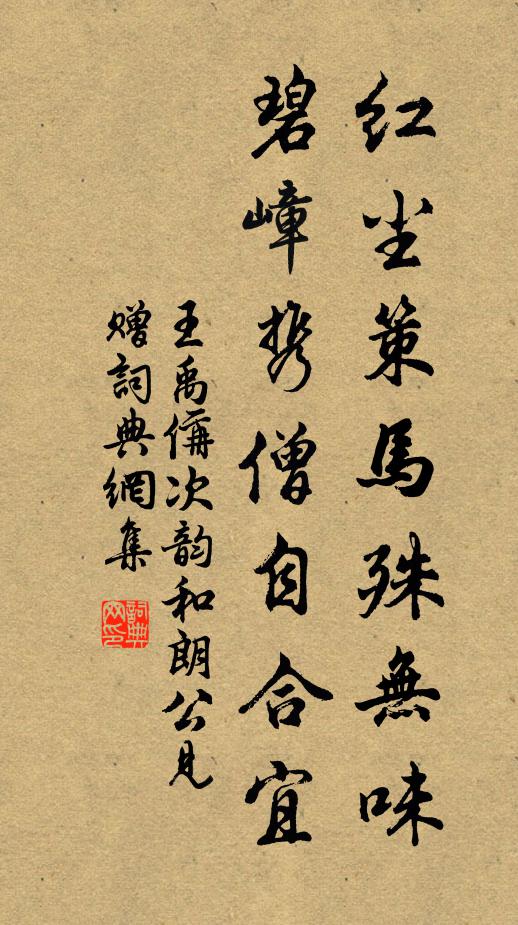 红尘策馬殊無味
碧嶂携僧自合宜
王禹偁次韵和朗公見
贈詞典網集
詞典網印